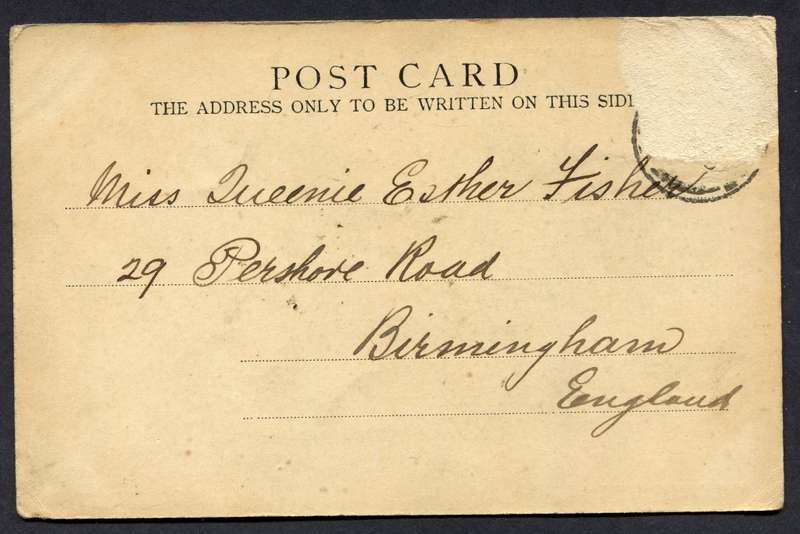 POST CARD
THE ADDRESS ONLY TO BE WRITTEN ON THIS SIDE
Miss Queenie Esther Fisher
29 Pershore Road
Birmingham
England